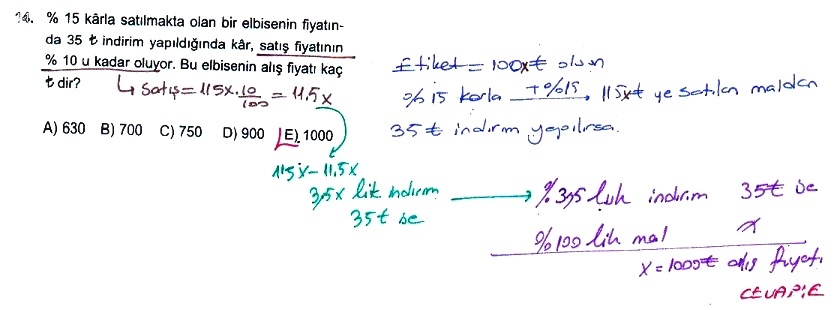 14. % 15 kârla satılmakta olan bir elbisenin fiyatın-
da 35 ₺ indirim yapıldığında kâr, satış fiyatının
% 10 u kadar oluyor. Bu elbisenin alış fiyatı kaç
₺ dir?
↳ Satış = 115x.10/100 = 11,5x
A) 630 B) 700 C) 750 D) 900 E) 1000
115x - 11,5x
3,5x lik indirim
35₺ ise
Etiket = 100x₺ olsun
% 15 karla +%15 115x₺ ye satılan maldan
35 ₺ indirim yapılırsa.
% 3,5 luk indirim 35₺ ise
% 100 lik mal x
x = 1000₺ alış fiyatı
CEVAP: E